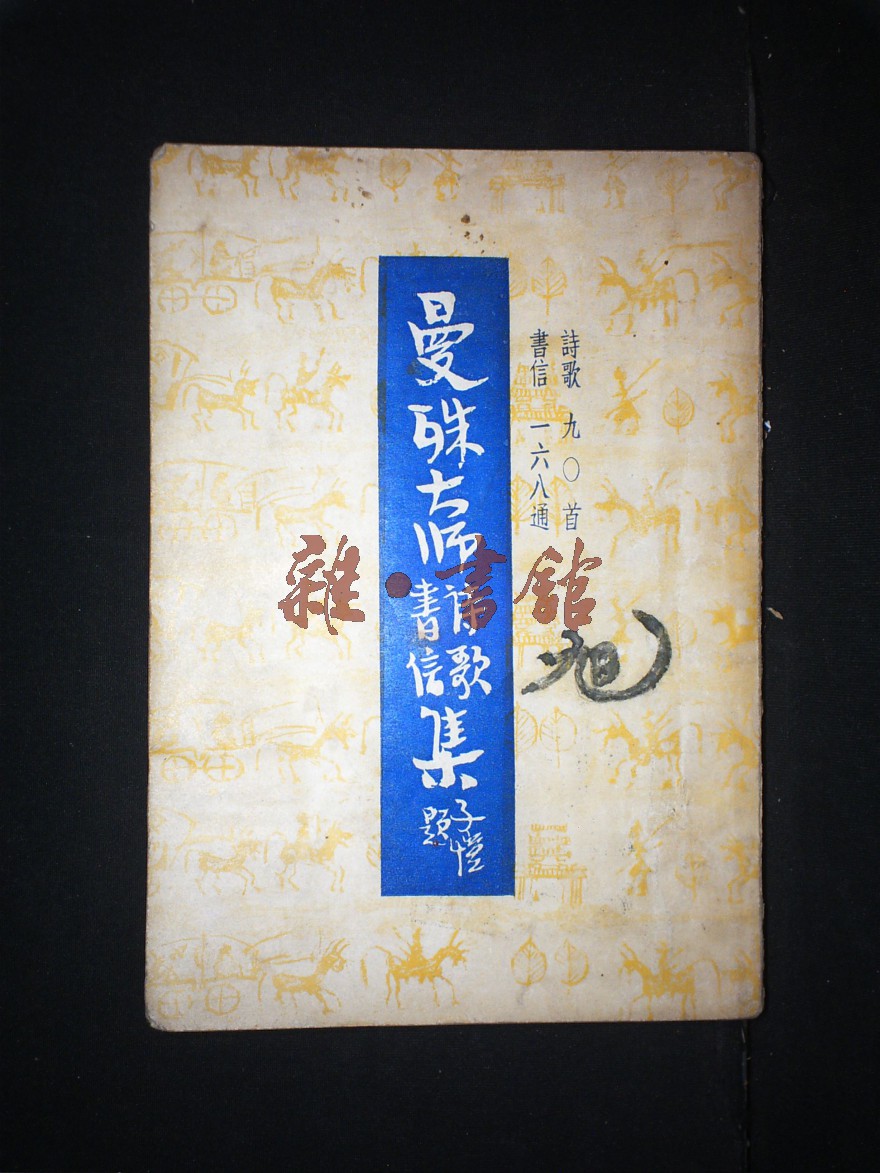 詩歌 九〇首
書信 一六八通
曼殊大师詩歌書信集
子愷題
旭
雜·書館